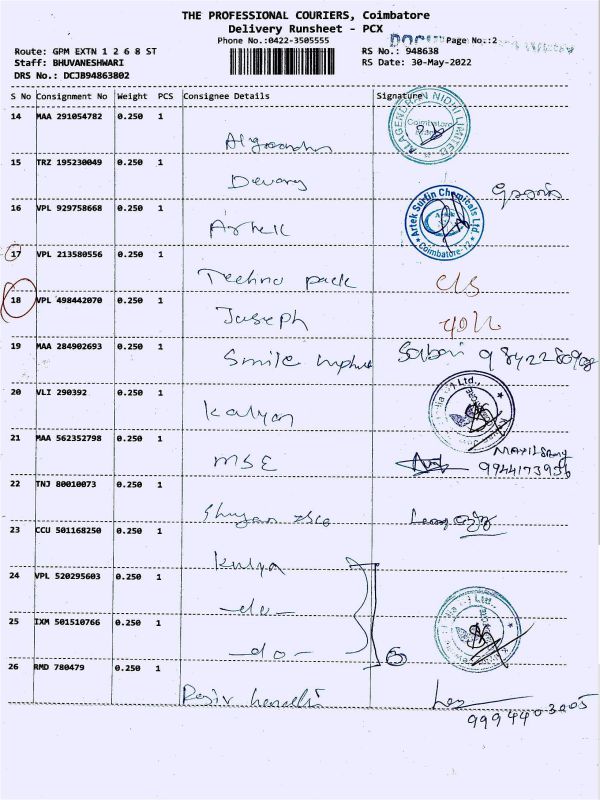 THE PROFESSIONAL COURIERS, Coimbatore
Delivery Runsheet - PCX
Phone No.:0422-3505555
Page No.:2
Route: GPM EXTN 1 2 6 8 ST
RS No.: 948638
Staff: BHUVANESHWARI
RS Date: 30-May-2022
DRS No.: DCJB94863802
S No Consignment No Weight PCS Consignee Details Signature
14 MAA 291054782 0.250 1
ALAGENDRAN NIDHI LIMITED Coimbatore
15 TRZ 195230049 0.250 1
Devang
16 VPL 929758668 0.250 1 Artek
Artek Surfin Chemicals Ltd. Artek Coimbatore-12
17 VPL 213580556 0.250 1
Techno pack C/S
18 VPL 498442070 0.250 1
Joseph
19 MAA 284902693 0.250 1
Smile Sabari
20 VLI 290392 0.250 1
Kalyan
Ltd.,
21 MAA 562352798 0.250 1
MSE
9944173956
22 TNJ 80010073 0.250 1
23 CCU 501168250 0.250 1
Kalya
24 VPL 520295603 0.250 1
-do-
25 IXM 501510766 0.250 1
-do-
Ltd.,
26 RMD 780479 0.250 1